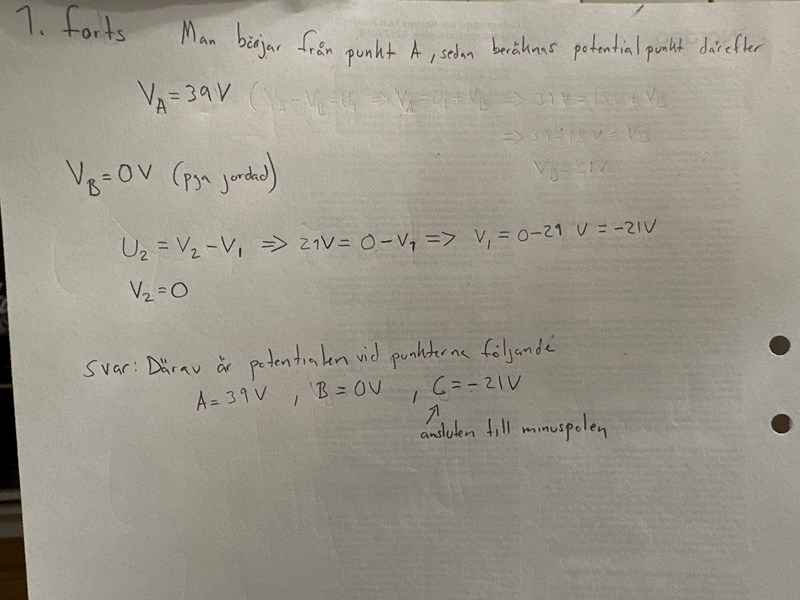 1. forts Man börjar från punkt A, sedan beräknas potential punkt därefter
V_A = 39 V (V_A - V_B = U_1 => V_A = U_1 + V_B => 39 V = 18 V + V_B
=> 39 - 18 V = V_B
V_B = 21 V
V_B = 0 V (pga jordad)
U_2 = V_2 - V_1 => 21V = 0 - V_1 => V_1 = 0 - 21 V = -21V
V_2 = 0
Svar: Därav är potentialen vid punkterna följande
A = 39 V , B = 0V , C = -21 V
↑
ansluten till minuspolen